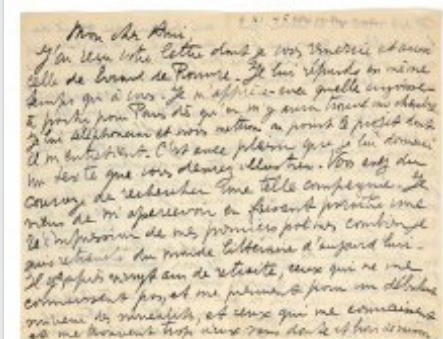 Mon cher Ami,
J'ai reçu votre lettre dont je vous remercie et aussi
celle de Renvre. Je lui réponds en même
temps qu'à vous. Je m'apprête avec quelle
à partir pour Paris dès qu'on m'y aura trouvé un chambre
Je lui téléphonerai et nous mettrons au point le projet dont
il m'entretient. C'est avec plaisir que je lui donnerai
un texte que vous devrez illustrer. Vous avez du
courage de rechercher une telle compagnie. Je
viens de m'apercevoir en faisant paraître une
réimpression de mes premiers poèmes combien je
suis retranché du monde littéraire d'aujourd'hui.
Et après vingt ans de retraite, ceux qui ne me
connaissent pas, et me prennent pour un débutant
et ceux qui me connaissent
me trouvent trop vieux sans doute et